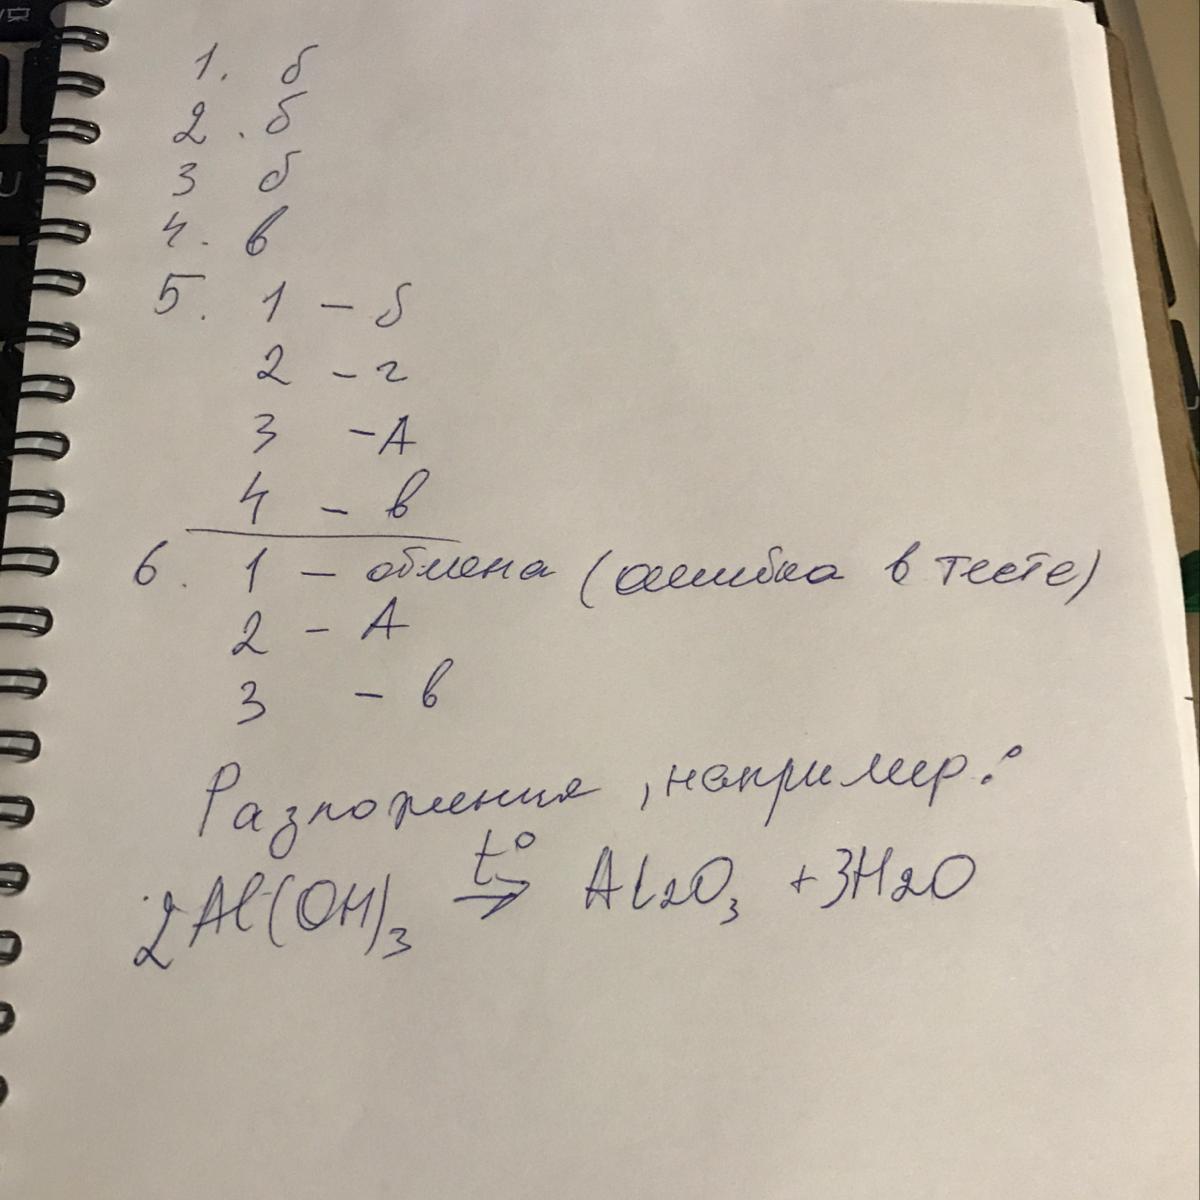 1. б
2. б
3 б
4. в
5. 1 - б
2 - г
3 - А
4 - в
6. 1 - обмена (ошибка в тесте)
2 - А
3 - в
Разложения, например:
t°
2Al(OH)₃ → Al₂O₃ + 3H₂O